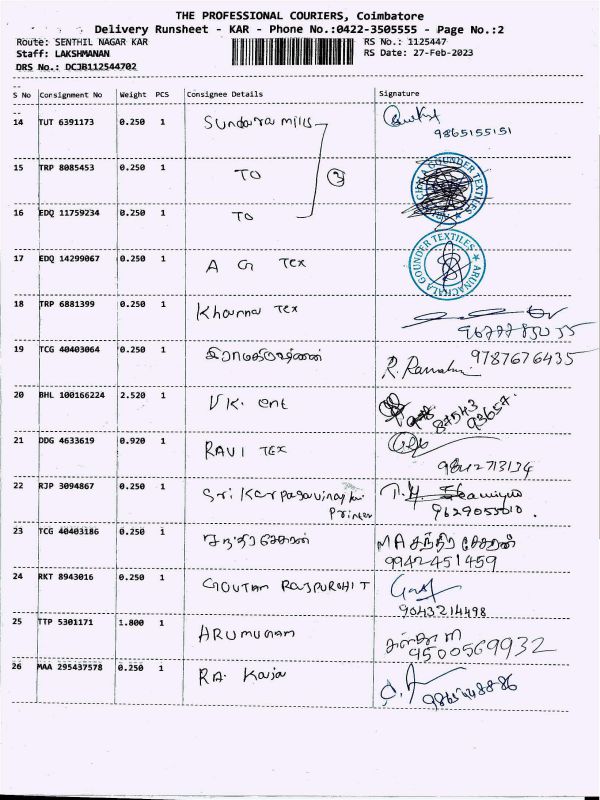 THE PROFESSIONAL COURIERS, Coimbatore
Delivery Runsheet - KAR - Phone No.:0422-3505555 - Page No.:2
Route: SENTHIL NAGAR KAR
RS No.: 1125447
Staff: LAKSHMANAN
RS Date: 27-Feb-2023
DRS No.: DCJB112544702
S No Consignment No Weight PCS Consignee Details Signature
14 TUT 6391173 0.250 1 Sundara mills
9865155151
15 TRP 8085453 0.250 1 TO
3
16 EDQ 11759234 0.250 1 TO
17 EDQ 14299067 0.250 1 A G Tex
ARUNACHALA GOUNDER TEXTILES
18 TRP 6881399 0.250 1 Khanna Tex
19 TCG 40403064 0.250 1 9787676435
R. Ramakri
20 BHL 100166224 2.520 1 V.K. ent
21 DDG 4633619 0.920 1 RAVI TEX
9842713134
22 RJP 3094867 0.250 1 Sri Karpagavinayakar
Printer
9629055010
23 TCG 40403186 0.250 1 சந்திரசேகரன் MA சந்திரசேகரன்
9942451459
24 RKT 8943016 0.250 1 GOUTAM RAJPUROHIT
9043214498
25 TTP 5301171 1.800 1 ARUMUGAM
9500569932
26 MAA 295437578 0.250 1 RA. Kaja